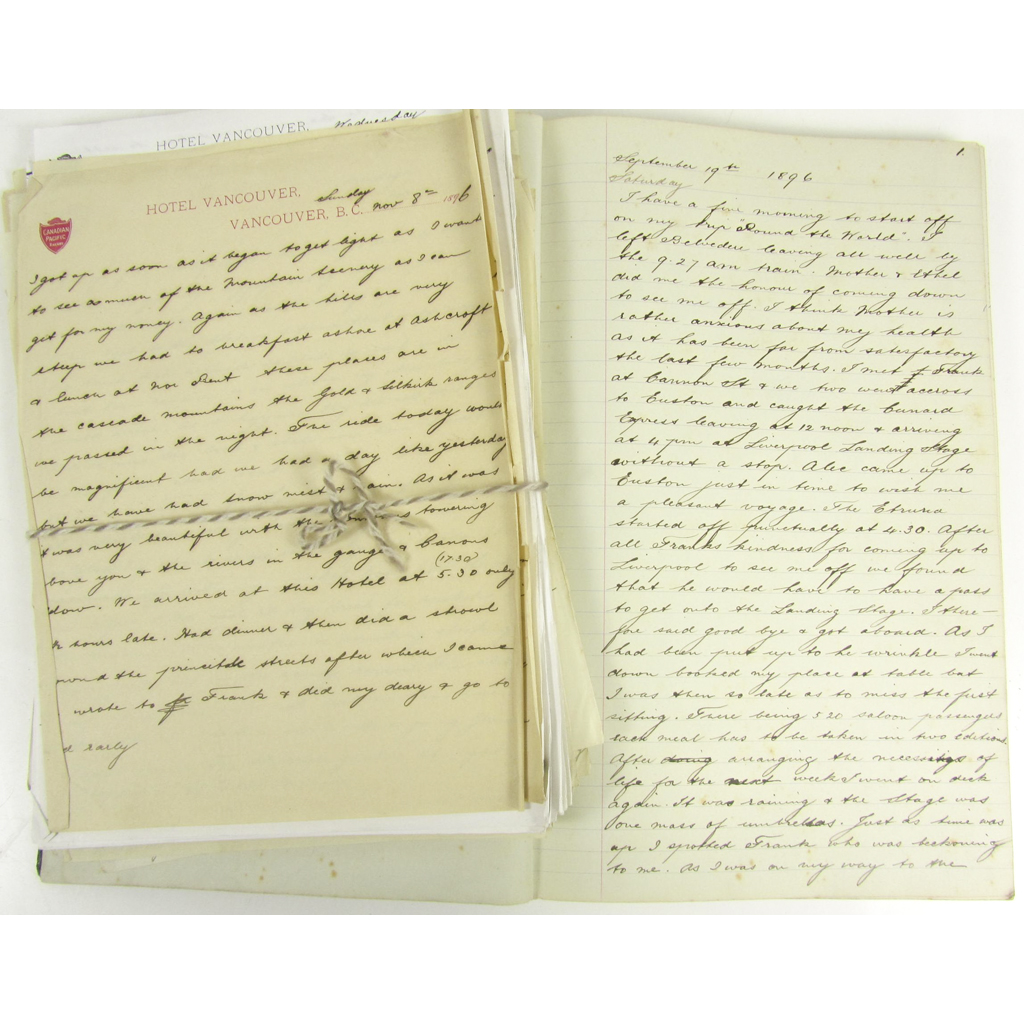 HOTEL VANCOUVER, Wednesday
HOTEL VANCOUVER,
VANCOUVER, B.C. Sunday Nov 8th 1896
CANADIAN
PACIFIC
I got up as soon as it began to get light as I want
to see as much of the Mountain Scenery as I can
get for my money. Again as the hills are very
steep we had to breakfast ashore at Ashcroft
& lunch at Nor Bent these places are in
the cascade mountains the Gold & Selkirk ranges
we passed in the night. The ride today would
be magnificent had we had a day like yesterday
but we have had snow mist & rain. As it was
it was very beautiful with the towering
bove you & the rivers in the gauges & Canons
(17.30)
low. We arrived at this Hotel at 5.30 only
hours late. Had dinner & then did a strowl
round the streets after which I came
wrote to Frank & did my diary & go to
d early
1.
September 19th 1896
Saturday
I have a fine morning to start off
on my trip "Round the World". I
left Belvedere leaving all well by
the 9.27 am train. Mother & Ethel
did me the honour of coming down
to see me off. I think Mother is
rather anxious about my health
as it has been far from satisfactory
the last few months. I met Frank
at Cannon St & we two went accross
to Euston and caught the Cunard
Express leaving at 12 noon & arriving
at 4 pm at Liverpool Landing Stage
without a stop. Alec came up to
Euston just in time to wish me
a pleasant voyage. The Etruria
started off punctually at 4.30. After
all Franks kindness for coming up to
Liverpool to see me off we found
that he would have to have a pass
to get onto the Landing Stage. I there-
fore said good bye & got aboard. As I
had been put up to he wrinkle I went
down booked my place at table but
I was then so late as to miss the first
sitting. There being 520 saloon passengers
each meal has to be taken in two editions.
After doing arranging the necessitys of
life for the next week I went on deck
again. It was raining & the Stage was
one mass of umbrellas. Just as time was
up I spotted Frank who was beckoning
to me. As I was on my way to the